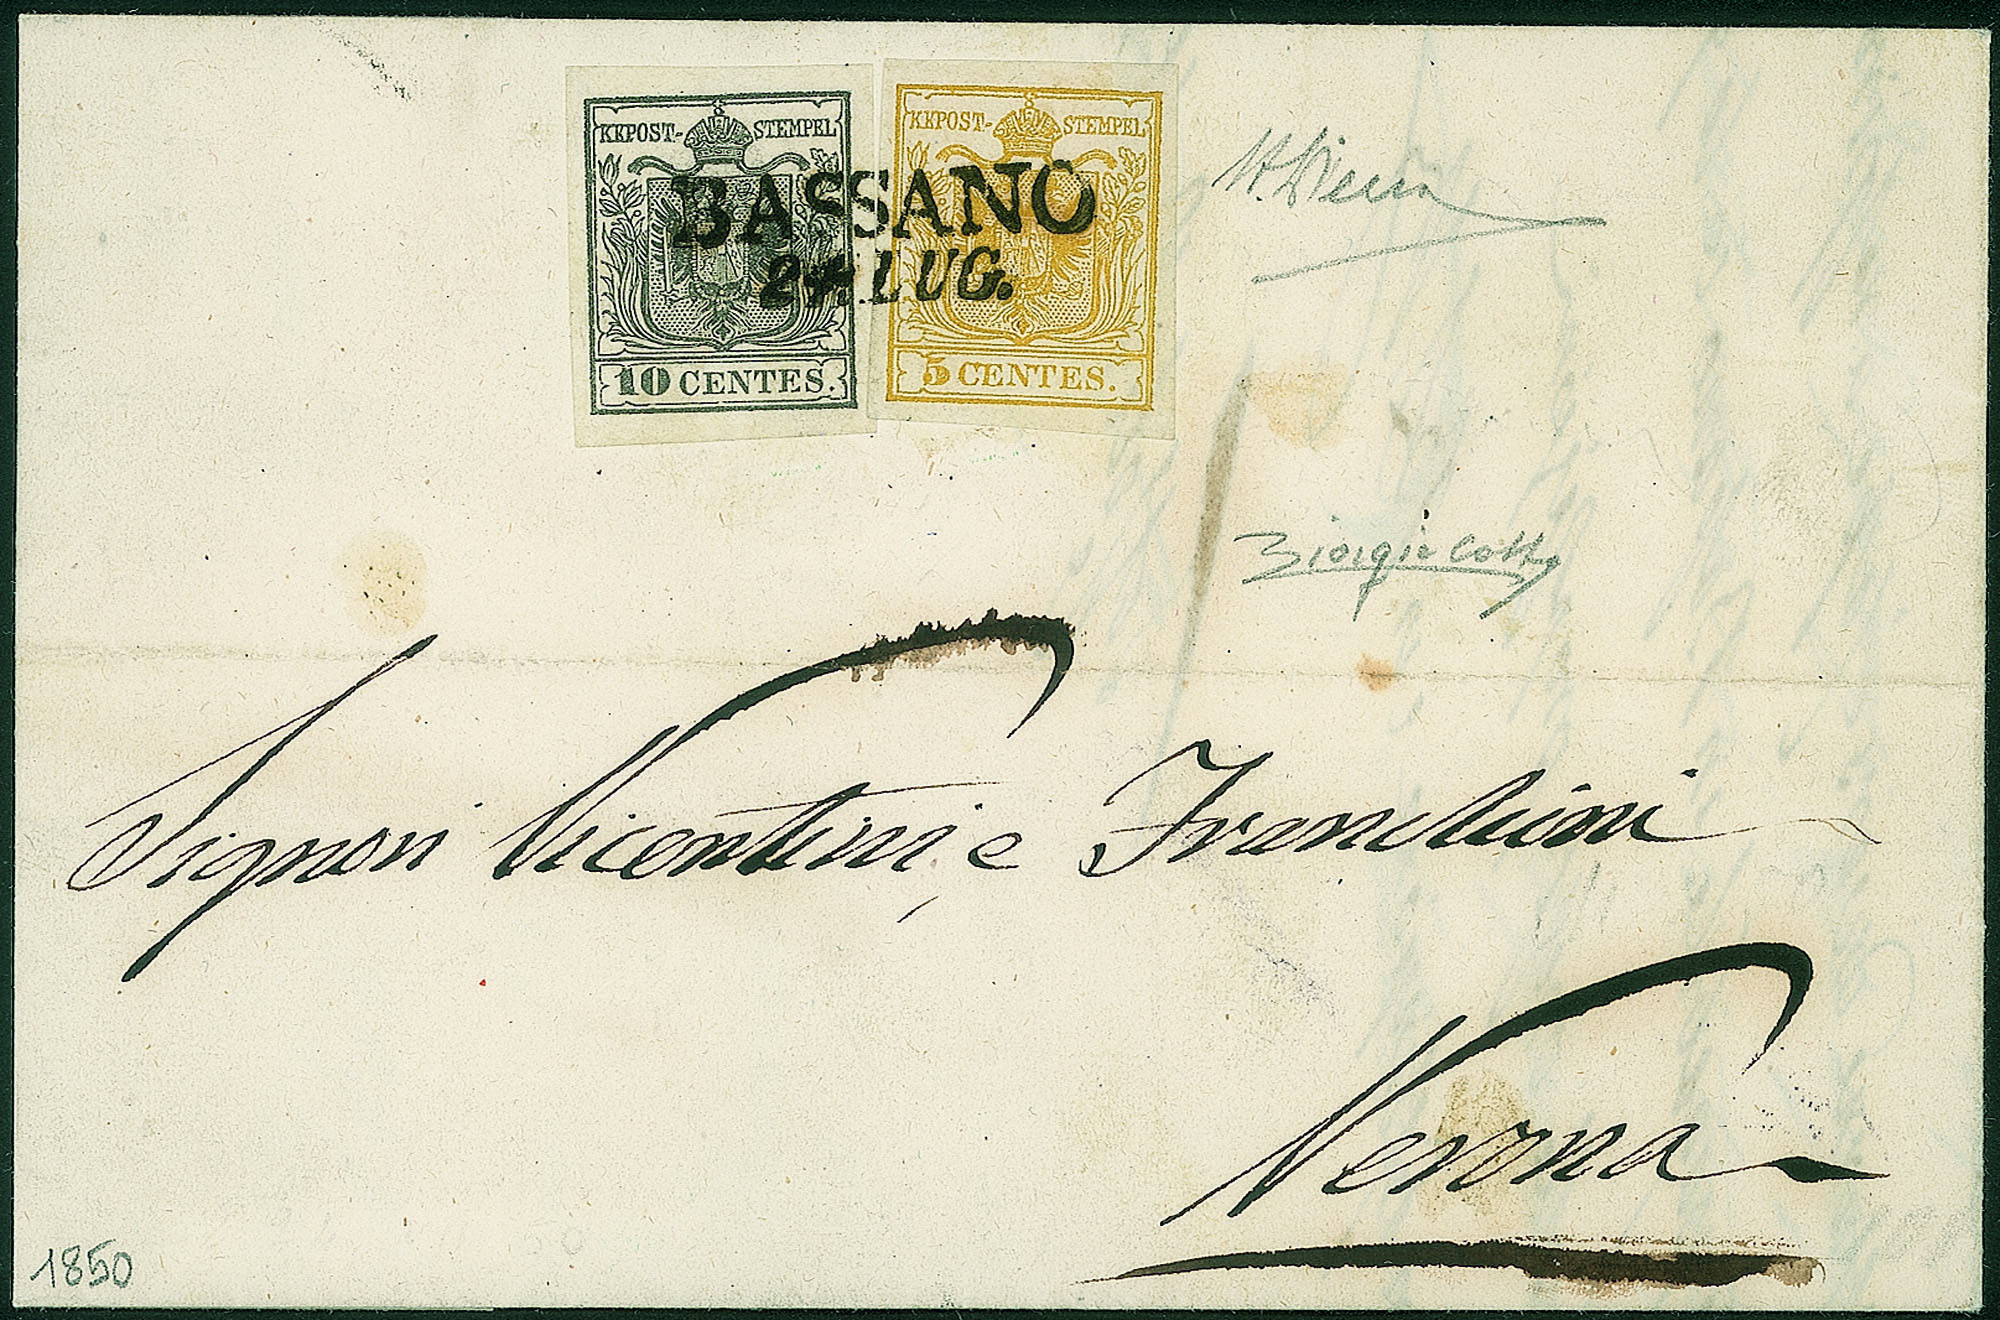 KKPOST- STEMPEL
KKPOST- STEMPEL
BASSANO
24.LUG.
10 CENTES.
5 CENTES.
Giorgio Colla
Signori Vicentini, e Franchini
Verona
1850